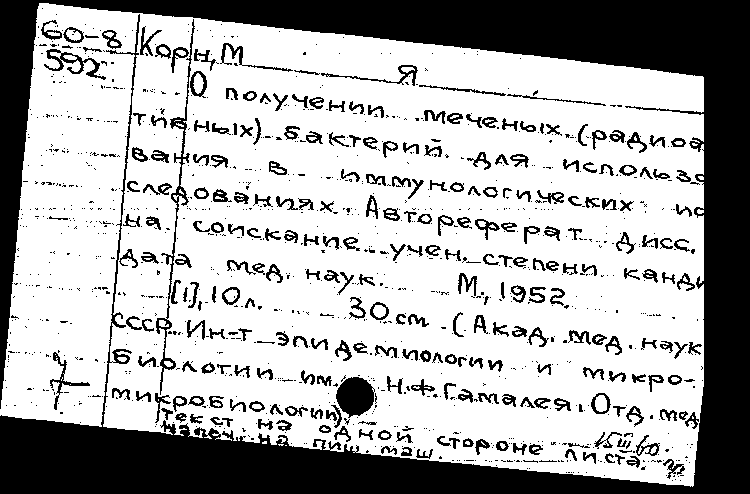 60-8 Корн, М Я
592
О получении меченых (радиоа
тивных) бактерий для использо
вания в иммунологических ис
следованиях. Автореферат дисс.
на соискание учен. степени канди
дата мед. наук. М., 1952.
[1], 10 л. 30 см. (Акад. мед. наук
СССР. Ин-т эпидемиологии и микро-
биологии им. Н.Ф. Гамалея. Отд. мед.
микробиологии).
Текст на одной стороне листа.
Напеч. на пиш. маш.
15 III 60.